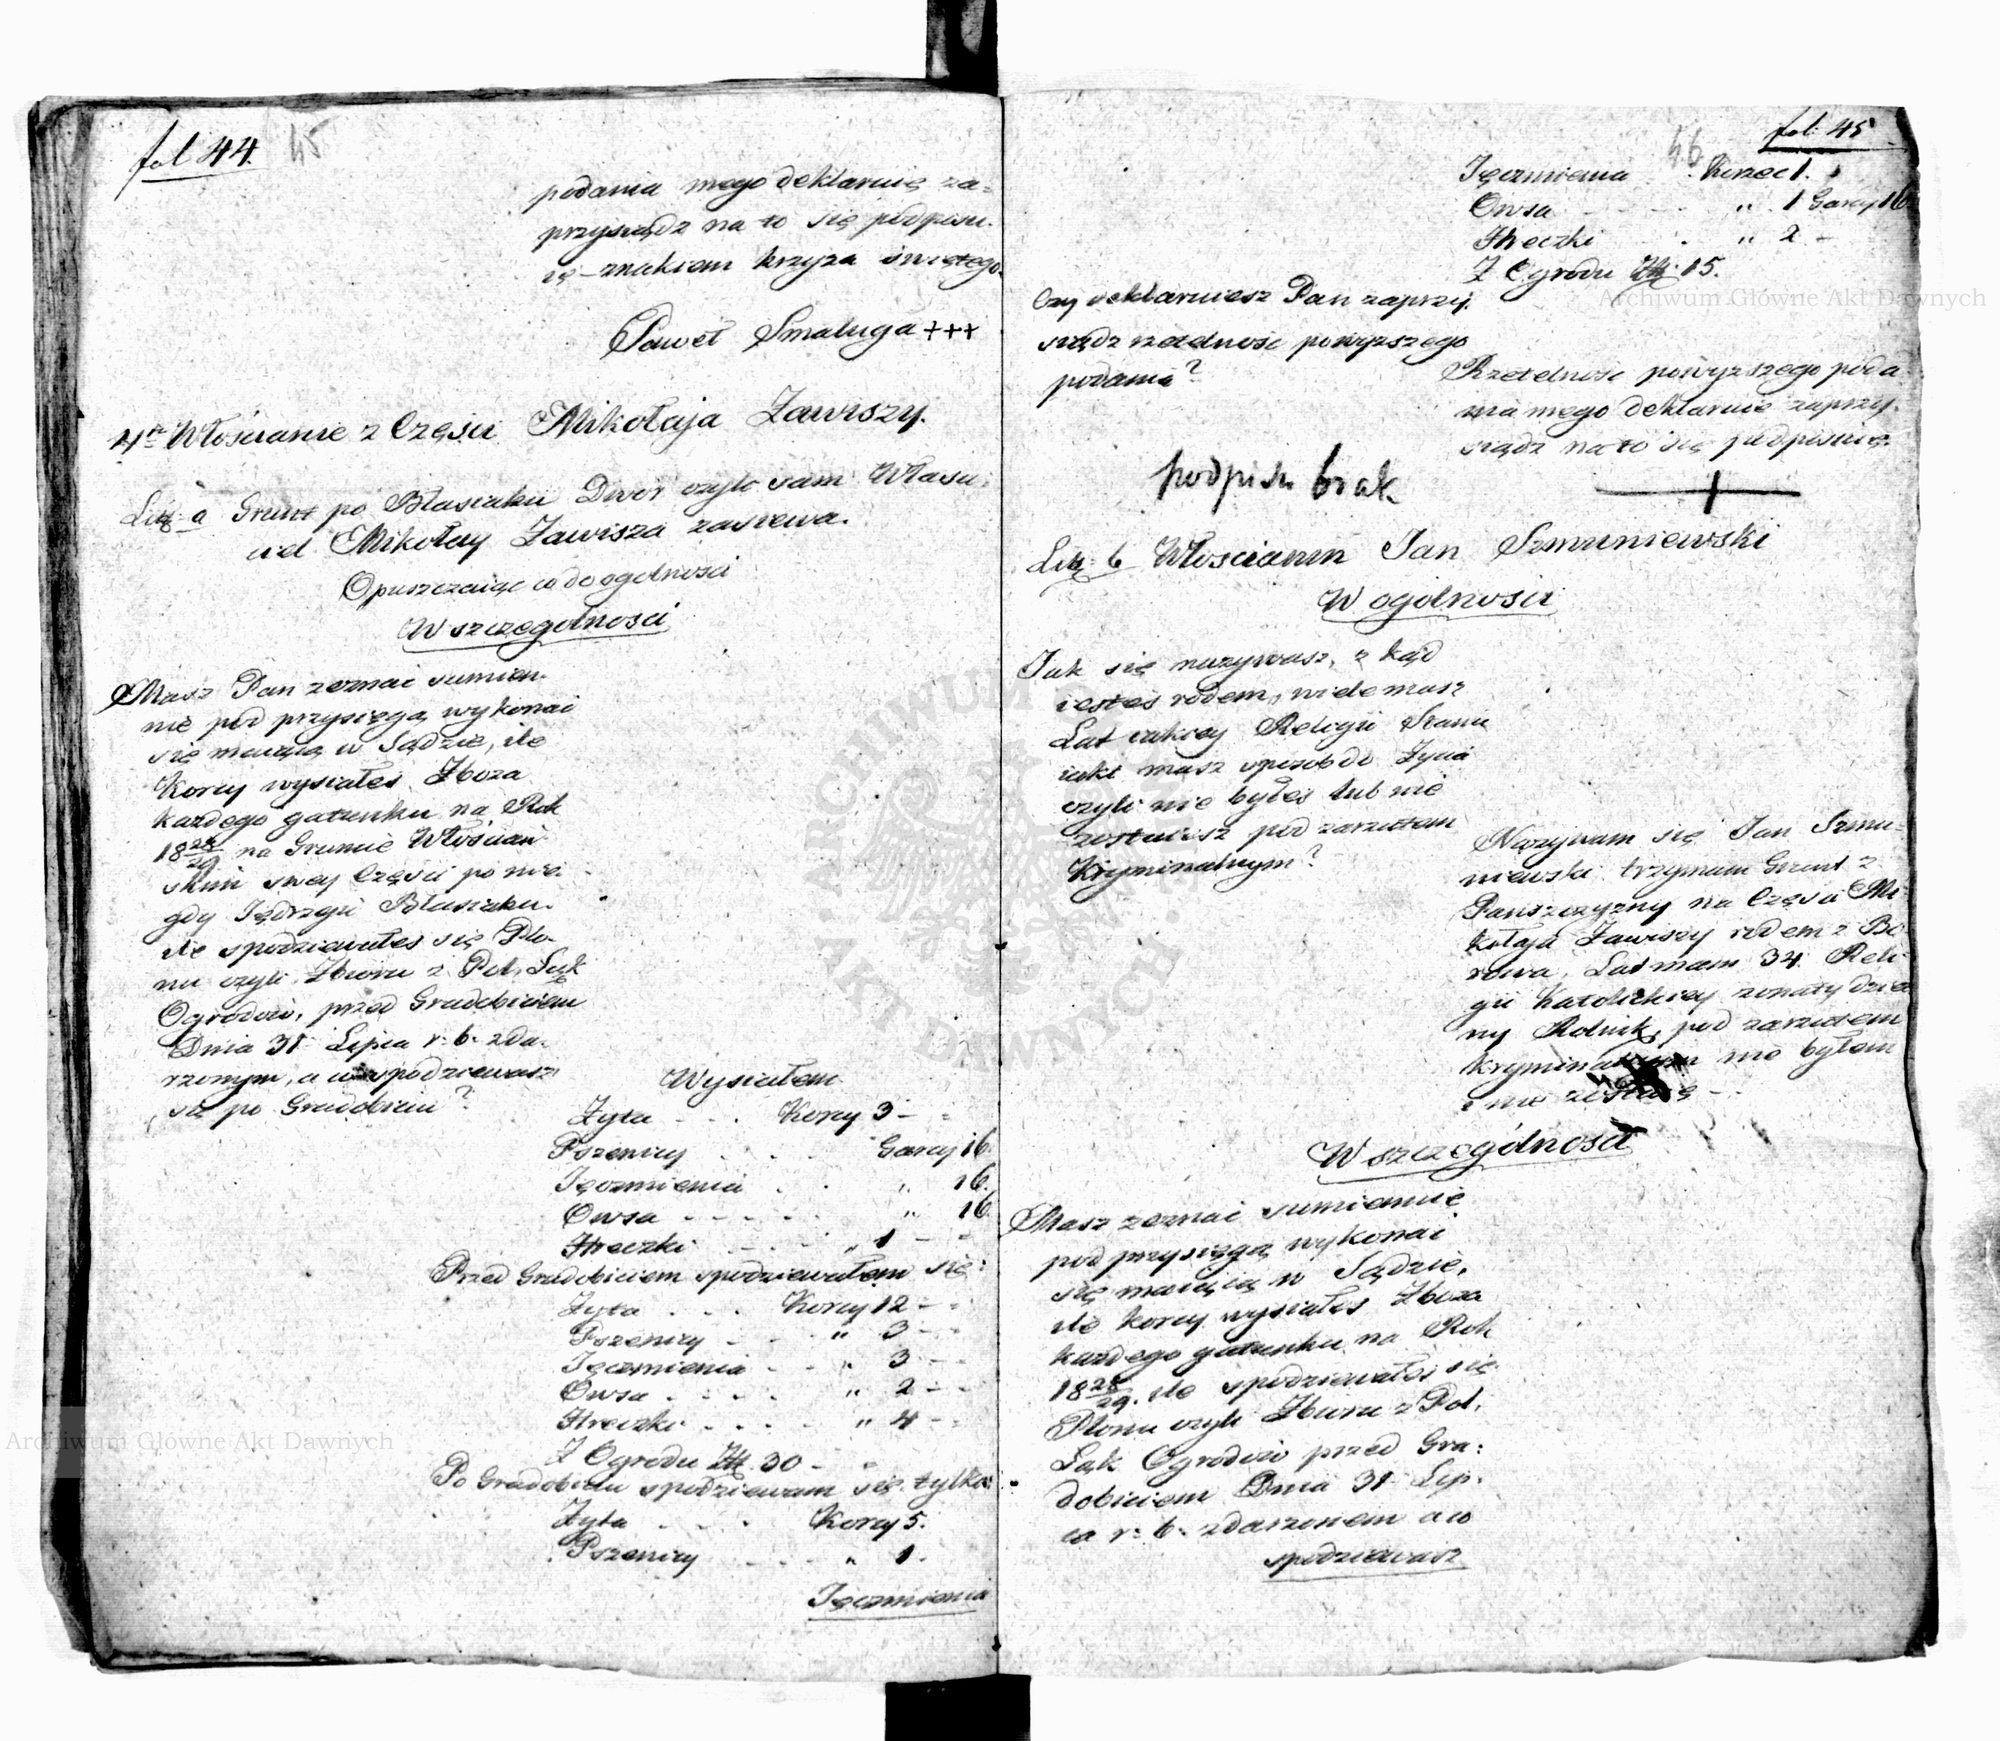 fol 44.
45
podania mego deklaruię za=
przysiądz na to się podpisu=
ię – znakiem krzyża świętego.
Paweł Smaługa +++
4te Włościanie z Części Mikołaja Zawiszy.
Litt: a Grunt po Błasiaku Dwór czyli sam Właści:
ciel Mikołay Zawisza zasiewa.
Opuszczaiąc co do ogolności
W szczegolności
Masz Pan zeznać sumien=
nie pod przysięgą wykonać
się maiącą w Sądzie, ile
Korcy wysiałeś Zboża
każdego gatunku na Rok
1828/29 na Gruncie Włościań
skim swey Części po nie=
gdy Jędrzeju Błasiaku.
ile spodziewałeś się Plo=
nu czyli Zbioru z Pol, Łąk
Ogrodów, przed Gradobiciem
Dnia 31 Lipca r. b. zda=
rzonym, a co spodziewasz
się po Gradobiciu?
Wysiałem
Żyta - - - Korcy 3 -
Pszenicy - - - Garcy 16.
Jęczmienia - - „ 16.
Owsa - - - - „ 16
Hreczki - - - „ 1 -
Przed Gradobiciem spodziewałem się:
Żyta - - - Korcy 12 -
Pszenicy - - - „ 3 -
Jęczmienia - - „ 3 -
Owsa - - - - „ 2 -
Hreczki - - - - „ 4 -
Z Ogrodu Zł. 30 -
Po Gradobiciu spodziewam się tylko:
Żyta - - - Korcy 5.
Pszenicy - - - „ 1.
Jęczmienia
fol: 45
46
Jęczmienia - Korzec 1.
Owsa - - - „ 1 Garcy 16
Hreczki - - „ 2 -
Z Ogrodu Zł. 15.
Czy deklaruiesz Pan zaprzy=
siądz rzetelność powyższego
podania?
Rzetelność powyższego poda
nia mego deklaruie zaprzy=
siądz na to się podpisuię.
podpisu brak
Litt: b Włościanin Jan Szmuniewski
W ogólności
Jak się nazywasz, z kąd
iesteś rodem, wiele masz
Lat iakiey Religii Stanu
iaki masz sposób do Życia
czyli nie byłeś lub nie
zostaiesz pod zarzutem
Kryminalnym?
Nazywam się Jan Szmu=
niewski trzymam Grunt z
Pańszczyzny na Części Mi=
kołaja Zawiszy rodem z Bo
rowa, Lat mam 34 Reli=
gii Katolickiey żonaty dzie
ny Rolnik, pod zarzutem
kryminalnym nie byłem
i nie zostaię -
W szczególności
Masz zeznać sumiennie
pod przysięgą wykonać
się maiącą w Sądzie,
ile korcy wysiałeś Zboża
każdego gatunku na Rok
1828/29. ile spodziewałeś się
Plonu czyli Zbioru z Pol,
Łąk Ogrodów przed Gra=
dobiciem Dnia 31 Lip=
ca r. b. zdarzonem a co
spodziewasz
Archiwum Główne Akt Dawnych
Archiwum Główne Akt Dawnych